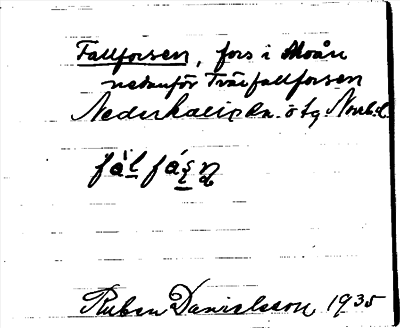 Fallforsen, fors i Moån
nedanför Träfallforsen
Nederkalix sn. ö tg. Norrb.l.
Ruben Danielsson 1935